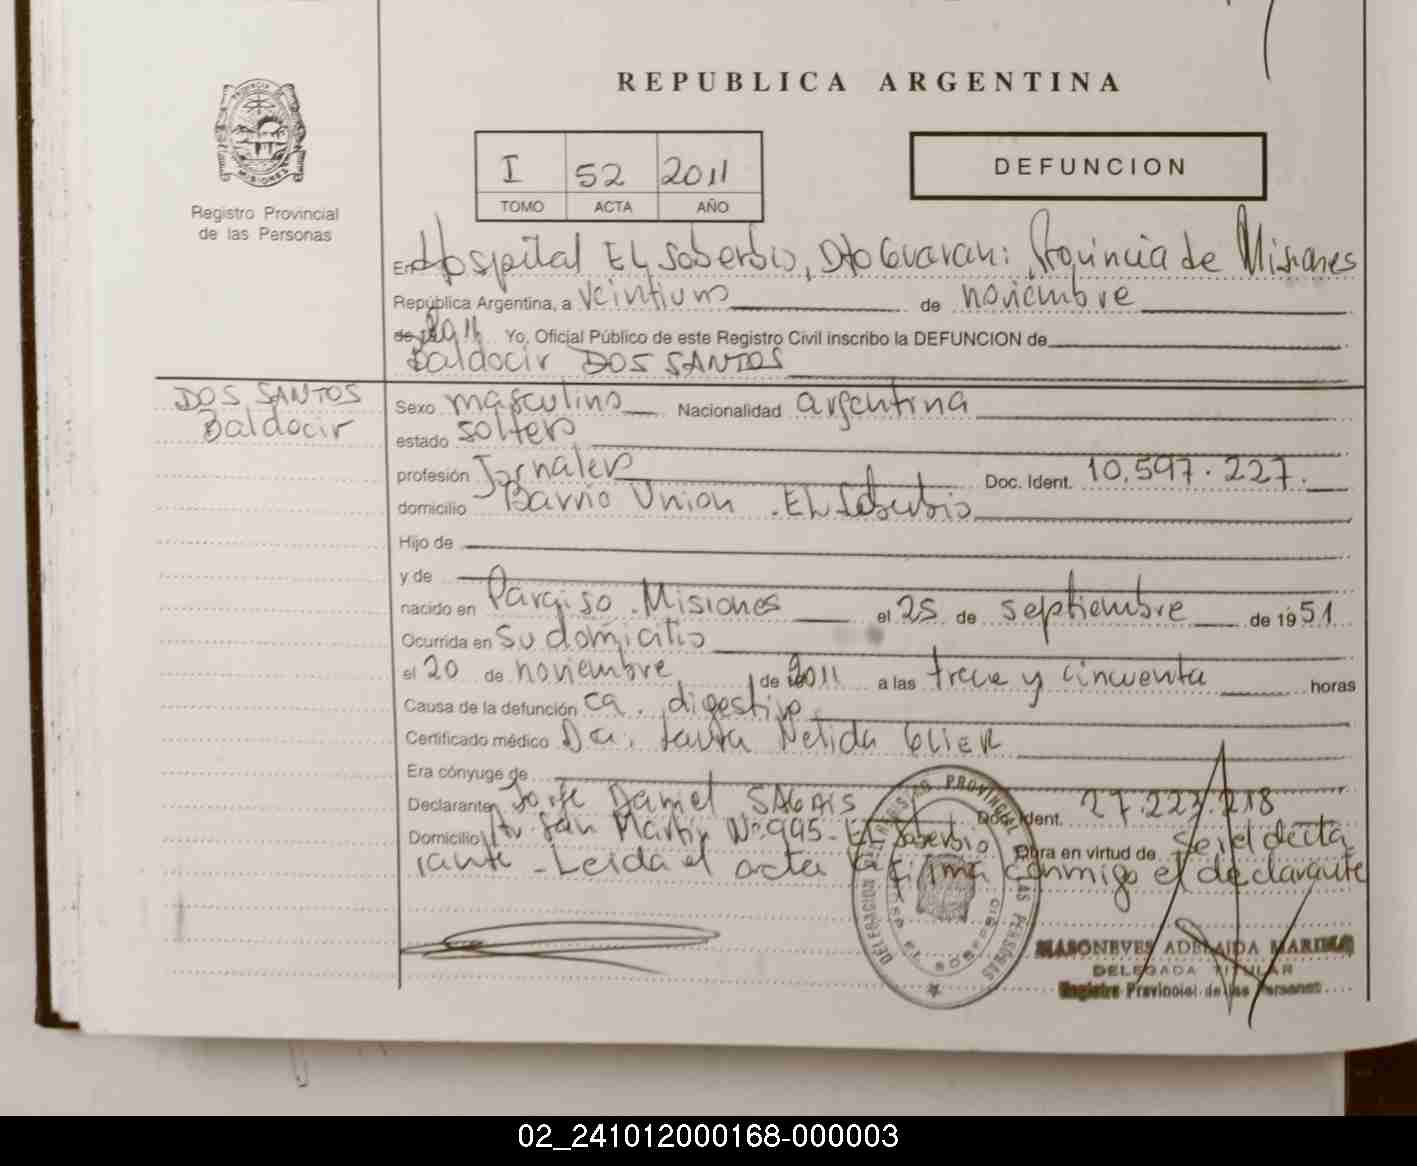 REPUBLICA ARGENTINA
I 52 2011
TOMO ACTA AÑO
DEFUNCION
Registro Provincial
de las Personas
En Hospital El Soberbio, Dto Guarani Provincia de Misiones
República Argentina, a veintiuno de noviembre
de 2011 Yo, Oficial Público de este Registro Civil inscribo la DEFUNCION de
Baldocir DOS SANTOS
DOS SANTOS
Baldocir
Sexo masculino Nacionalidad argentina
estado soltero
profesión Jornalero Doc. Ident. 10.597.227.
domicilio Barrio Union . El Soberbio
Hijo de
y de
nacido en Paraiso . Misiones el 25 de septiembre de 1951
Ocurrida en su domicilio
el 20 de noviembre de 2011 a las trece y cincuenta horas
Causa de la defunción ca. digestivo
Certificado médico Dra. Laura Nelida
Era cónyuge de
Declarante Jorge Daniel Doc. Ident. 27.223.218
Domicilio Av San Martin Nº 995 - El Soberbio Obra en virtud de ser el decla
rante - Leida el acta la firma conmigo el declarante
MASONEVES ADELAIDA MARINA
DELEGADA TITULAR
Registro Provincial de las Personas
02_241012000168-000003